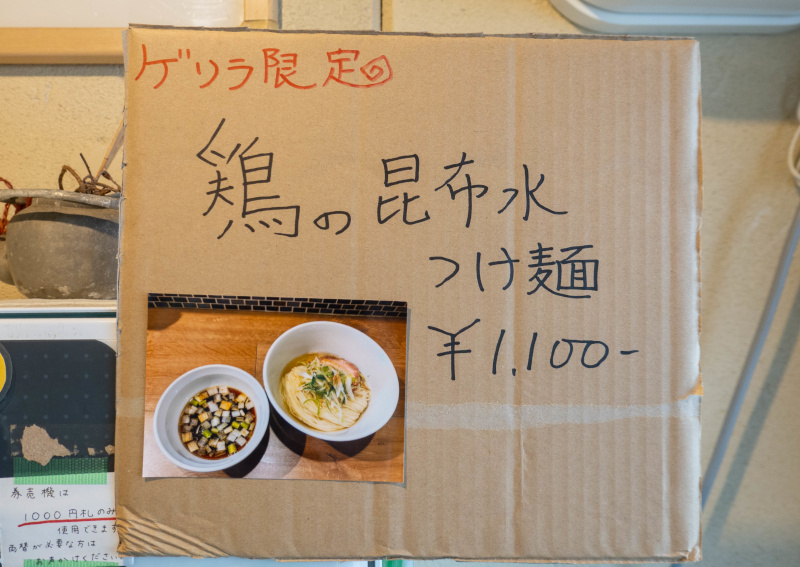 ゲリラ限定の
鶏の昆布水
つけ麺
¥1,100-
券売機は
1000円札のみ
使用できます
両替が必要な方は
お声かけください